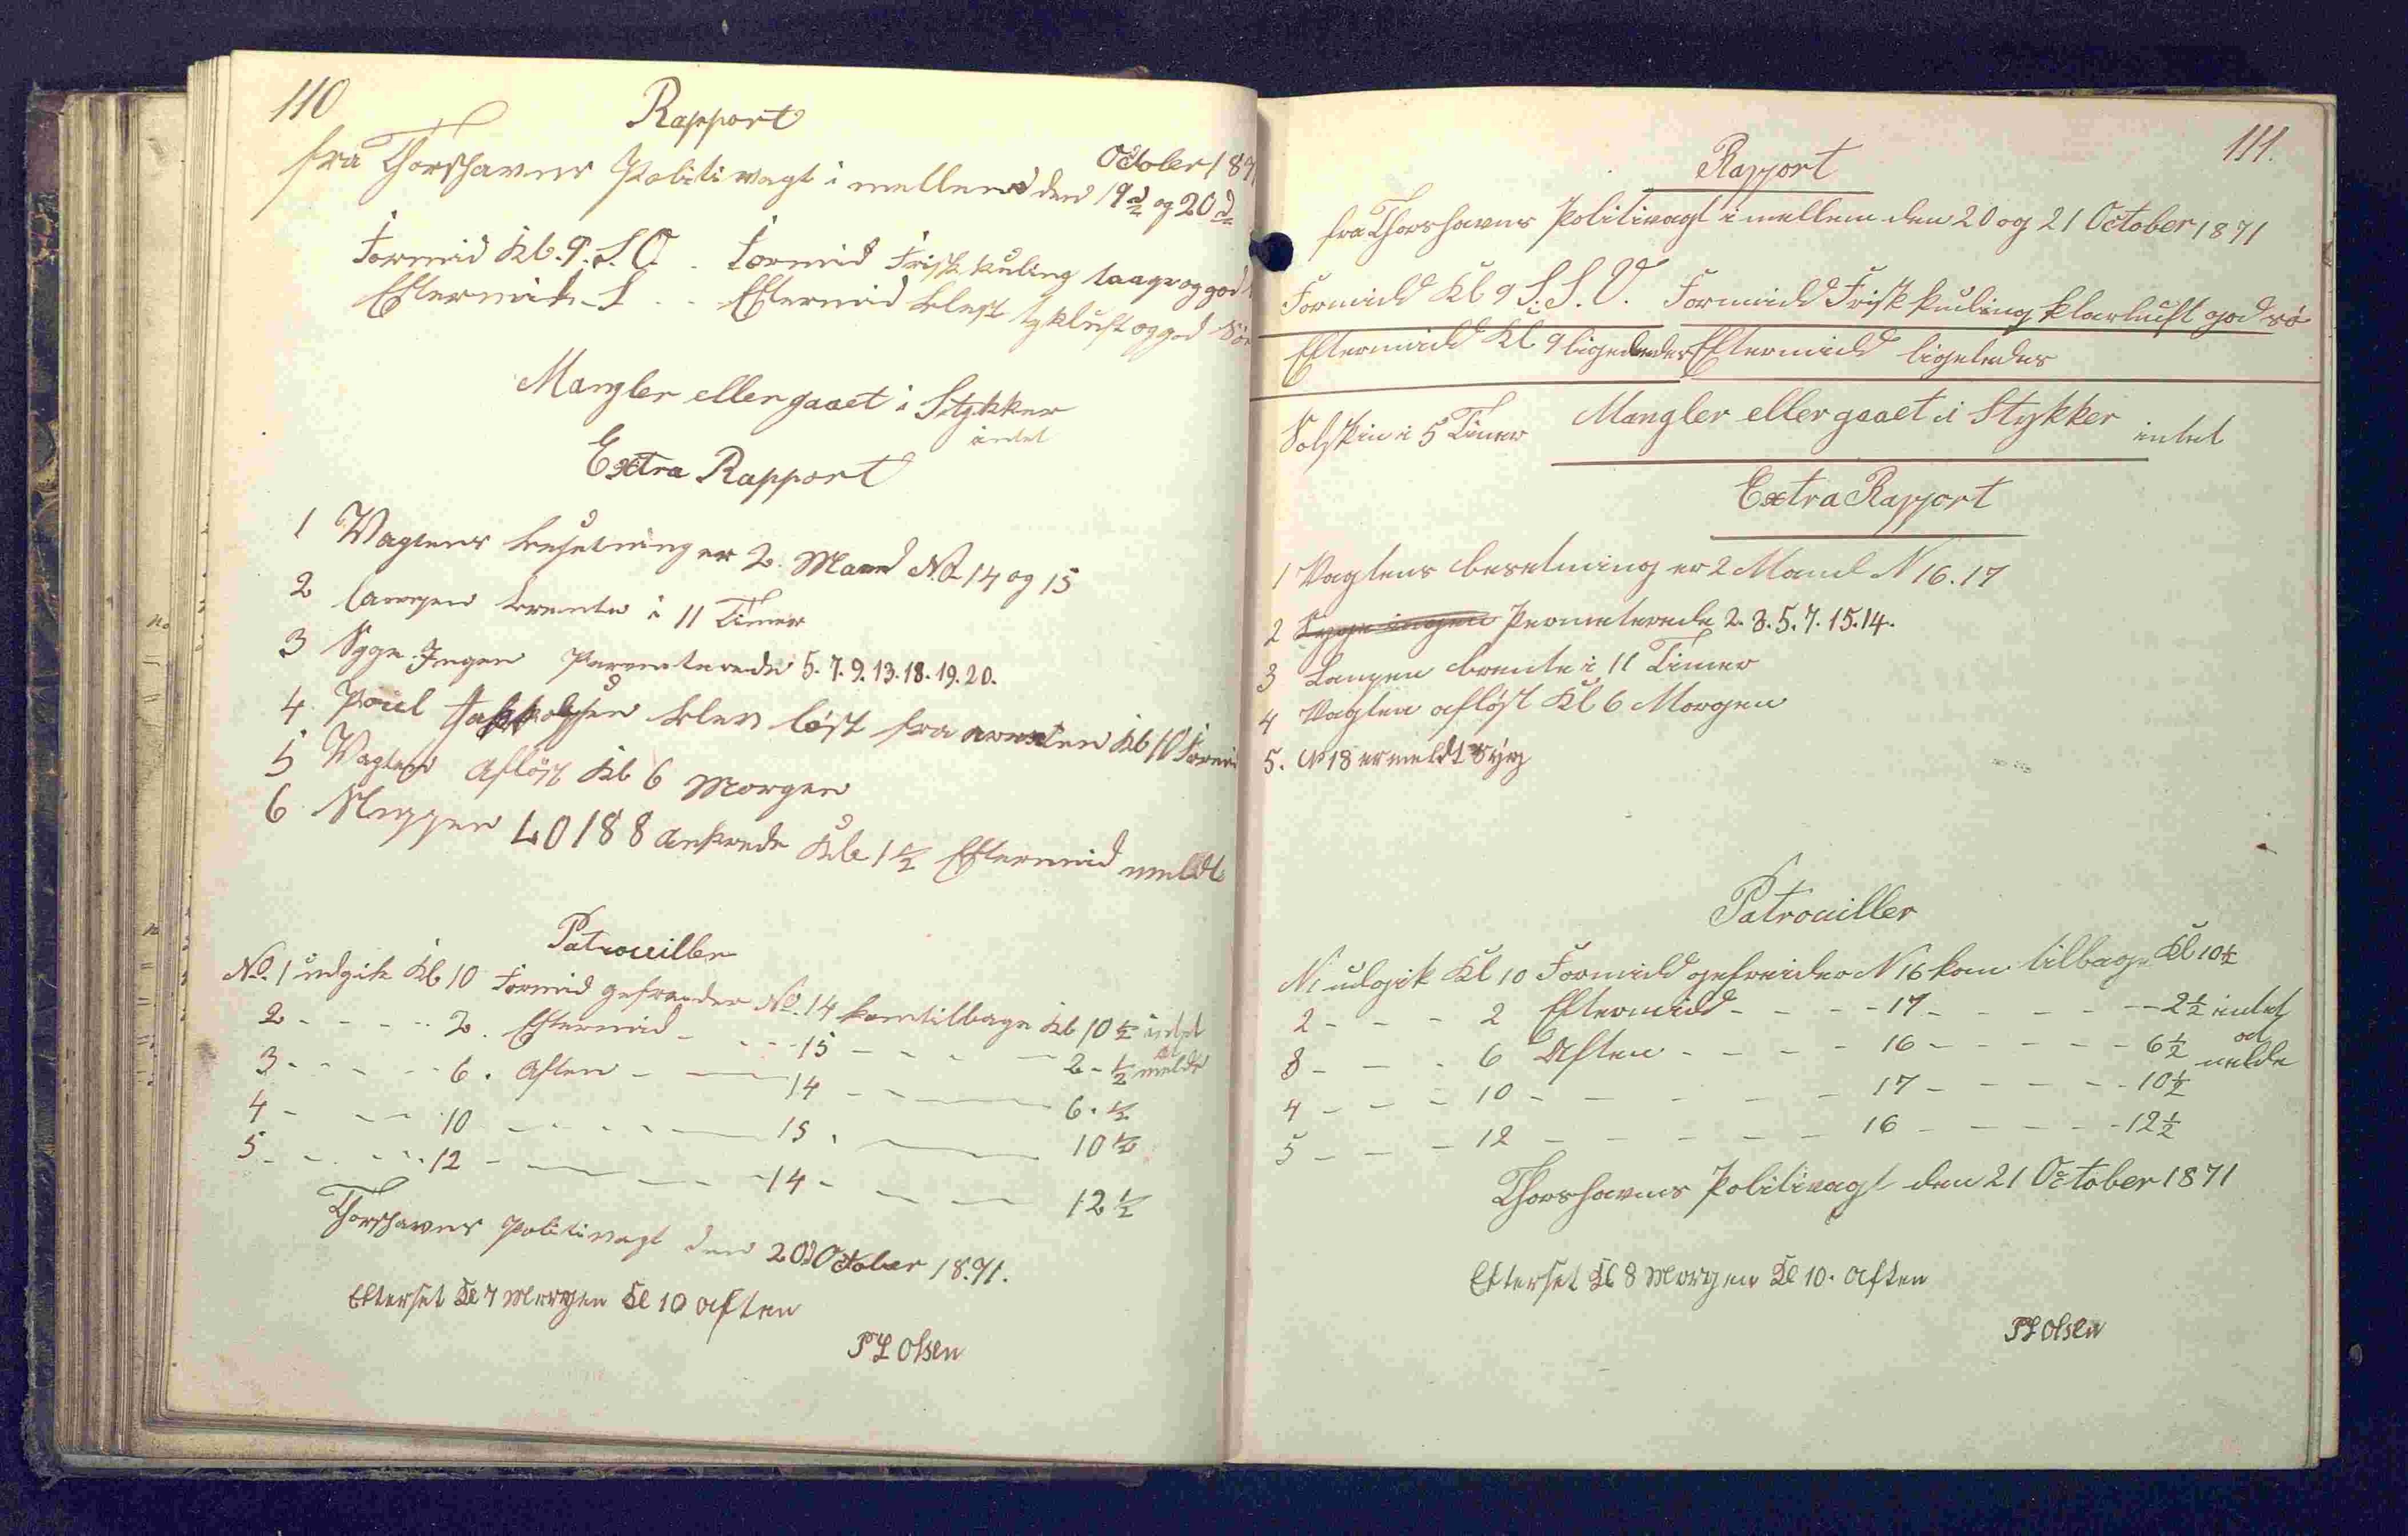 110
Rapport
fra Thorshavns Politivagt i mellem den 19d og 20d
October 187
Formid Kl. 9. S.O. Formid Frisk kuling taage og god
Eftermid. S - - Eftermid blest tykluft og god Sö
Mangler eller gaaet i Stykker
intet
Extra Rapport
1 Vagtens besetning er 2 Mand No 14 og 15
2 Lampen brente i 11 Timer
3 Syge Ingen Permeterede 5. 7. 9. 13. 18. 19. 20.
4 Poul blev löst fra aresten Kl 10 Formi
5 Vagten Aflöst Kl 6 Morgen
6 Sluppen LO 188 ankrede Kl 1 1/2 Eftermid meldt
Patrouiller
No. 1 udgik Kl 10 Formid gefreider No. 14 kom tilbage Kl 10 1/2 intet
2 - - - - 2. Eftermid - - - 15 - - - - 2 - 1/2 at melde
3 - - - - 6. Aften - - 14 - - - 6. 1/2
4 - - - 10 - - - - 15. - - 10 1/2
5 - - - - 12 - - - - 14 - - - - 12 1/2
Thorshavns Politivagt den 20d October 1871.
Efterset Kl 7 Morgen Kl 10 Aften
P L Olsen
111.
Rapport
fra Thorshavns Politivagt imellem den 20 og 21 October 1871
Formidd Kl 9 S.S.V. Formidd Frisk kuling klarluft god sö
Eftermidd Kl 9 ligeledes Eftermidd ligeledes
Solskin i 5 Timer Mangler eller gaaet i Stykker intet
Extra Rapport
1 Vagtens besetning er 2 Mand N 16. 17
2 Syge ingen Permeterede 2. 3. 5. 7. 15. 14.
3 Lampen brente i 11 Timer
4 Vagten aflöst Kl 6 Morgen
5. N 18 er meldt syg
Patrouiller
N 1 udgik Kl 10 Formidd gefreider N 16 kom tilbage Kl 10 1/2
2 - - - 2 Eftermidd - - - 17 - - - - - 2 1/2 intet
3 - - - 6 Aften - - - - 16 - - - - - 6 1/2 at melde
4 - - - 10 - - - - - 17 - - - - - 10 1/2
5 - - - 12 - - - - - 16 - - - - - 12 1/2
Thorshavns Politivagt den 21 October 1871
Efterset Kl 8 Morgen Kl 10. Aften
P L Olsen